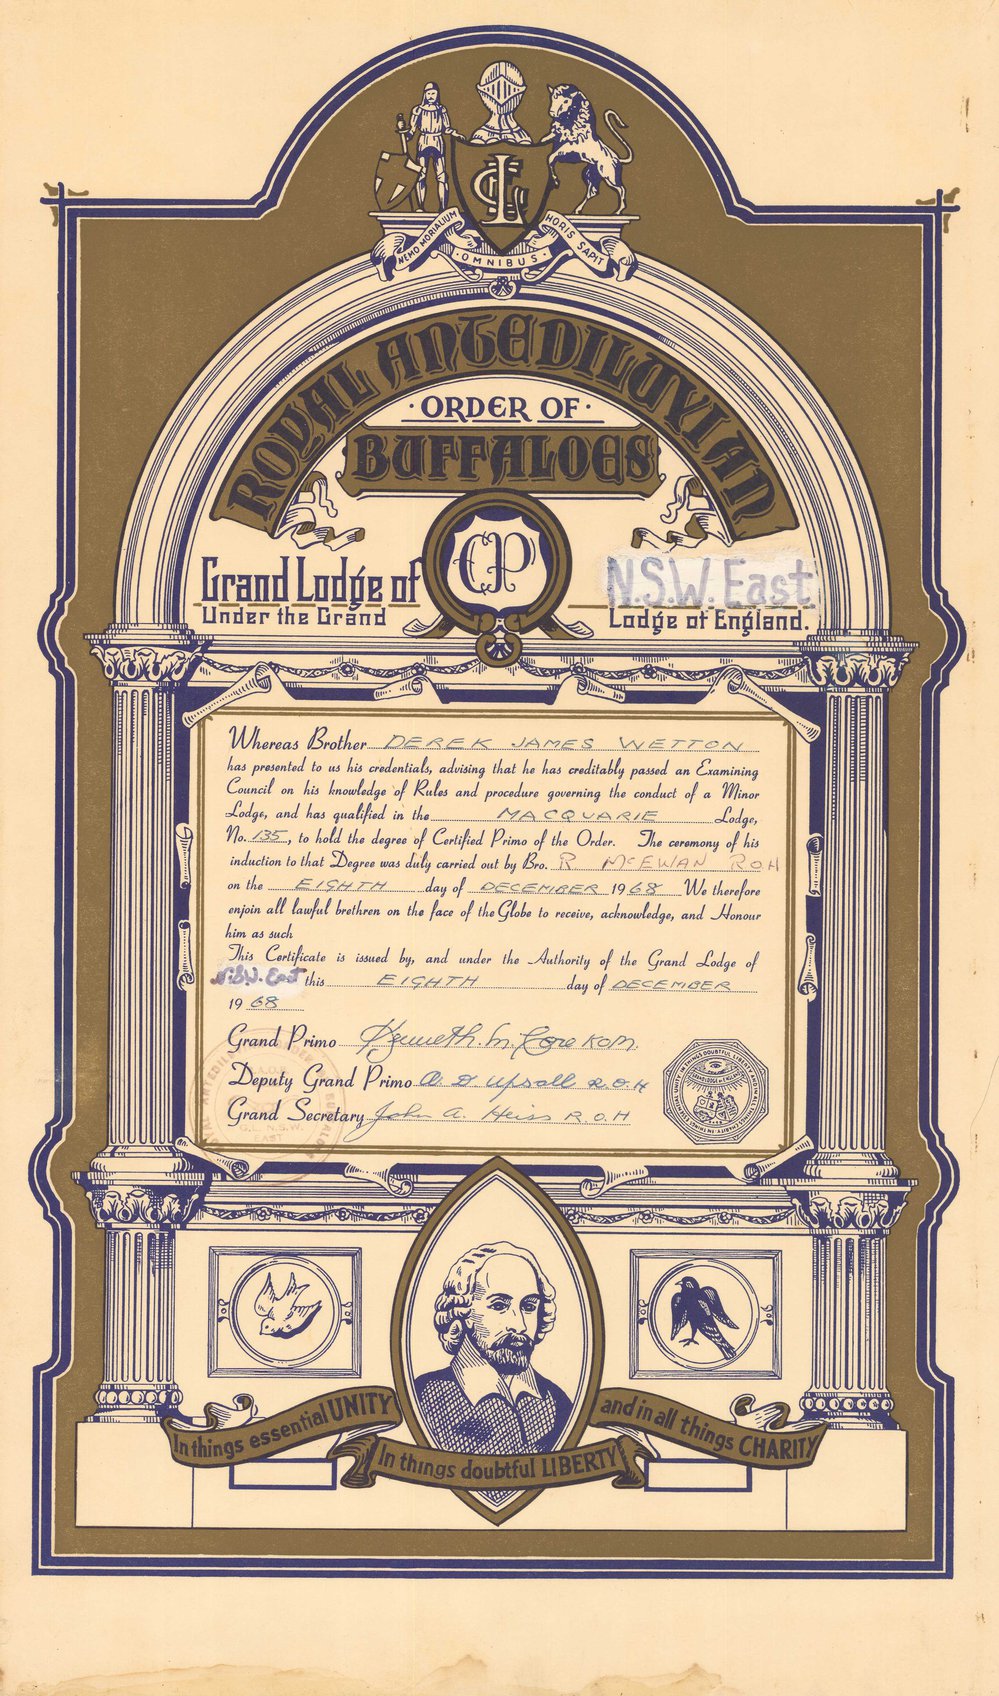 NEMO MORTALIUM
OMNIBUS
HORIS SAPIT
ROYAL ANTEDILUVIAN
· ORDER OF ·
BUFFALOES
CP
Grand Lodge of N.S.W. East
Under the Grand Lodge of England.
Whereas Brother DEREK JAMES WETTON
has presented to us his credentials, advising that he has creditably passed an Examining
Council on his knowledge of Rules and procedure governing the conduct of a Minor
Lodge, and has qualified in the MACQUARIE Lodge,
No. 135, to hold the degree of Certified Primo of the Order. The ceremony of his
induction to that Degree was duly carried out by Bro. R McEWAN R.O.H
on the EIGHTH day of DECEMBER 1968 We therefore
enjoin all lawful brethren on the face of the Globe to receive, acknowledge, and Honour
him as such
This Certificate is issued by, and under the Authority of the Grand Lodge of
N.S.W. East this EIGHTH day of DECEMBER
1968
Grand Primo Kenneth. M. Gore KOM.
Deputy Grand Primo A. D. Upsall R.O.H
Grand Secretary John A. Heiss R.O.H
G.L. N.S.W.
EAST
In things essential UNITY
In things doubtful LIBERTY
and in all things CHARITY